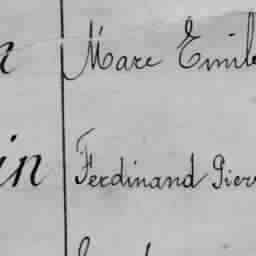 Marc Emil
in Ferdinand Pier